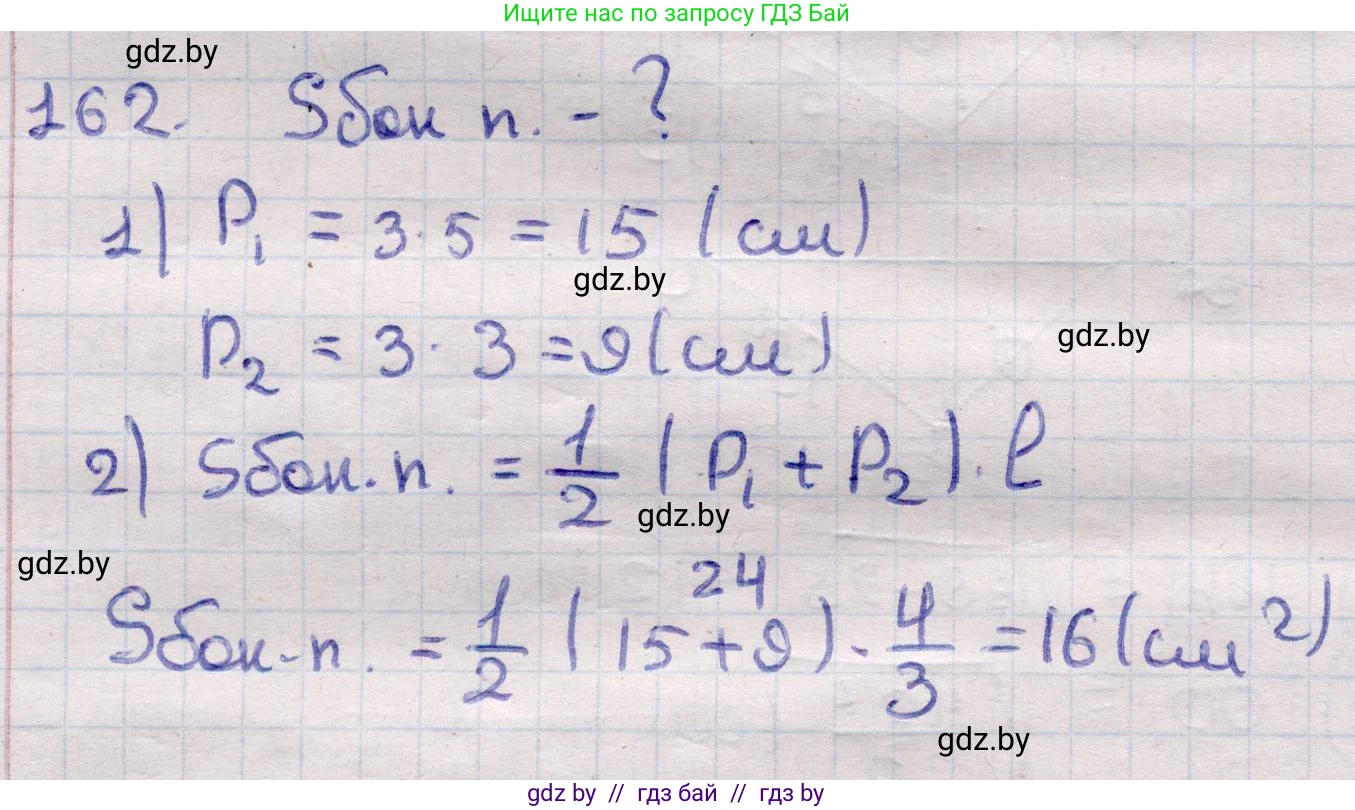 Ищите нас по запросу ГДЗ Бай
gdz.by
162. Sбок п. - ?
1) P₁ = 3·5 = 15 (см)
gdz.by
P₂ = 3·3 = 9 (см)
gdz.by
2) Sбок.п. = 1/2 (P₁ + P₂)·l
gdz.by
gdz.by
24
Sбок.п. = 1/2 (15+9)·4/3 = 16 (см²)
gdz.by
gdz by // гдз бай // гдз by